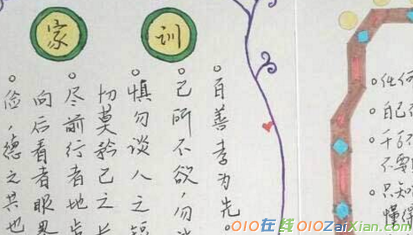 家训
百善孝为先
己所不欲,勿
慎勿谈人之短
切莫矜己之长
尽前行者地步
向后看者眼界
俭,德之共也
。任何
。自己
不要
。只知
懂得
010在线 010ZaiXian.com